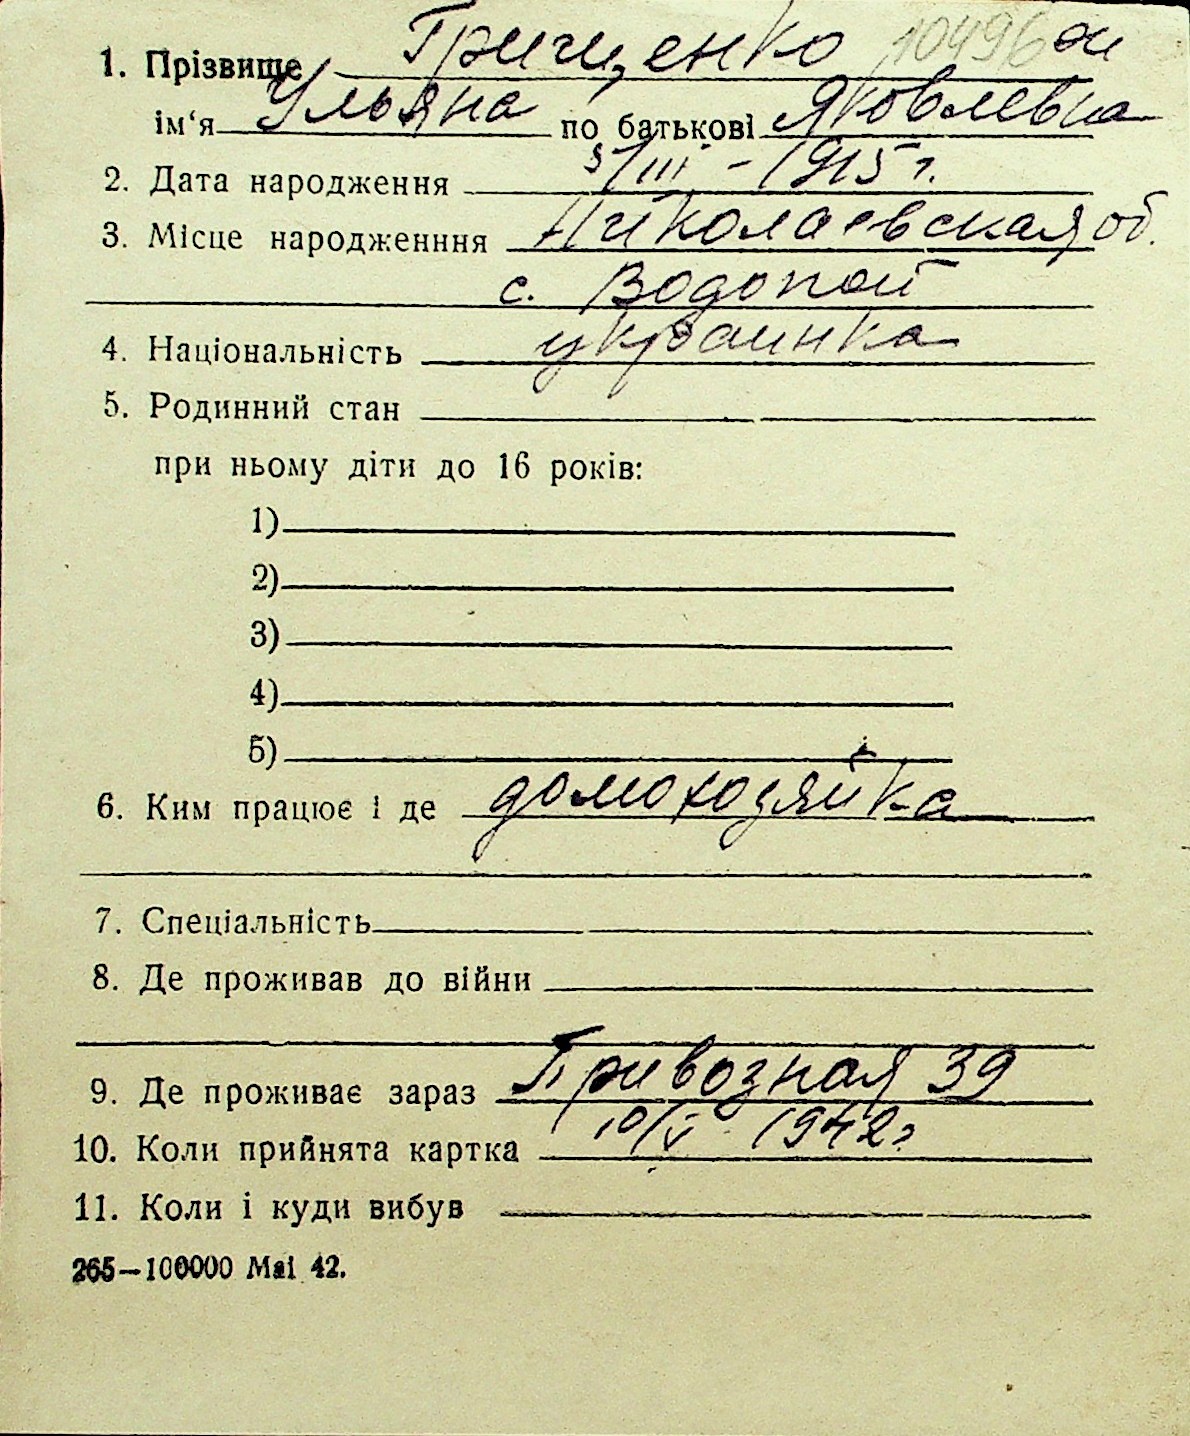 1. Прізвище Грищенко 10496 ж
ім‘я Ульяна по батькові Яковлевна
2. Дата народження 8/III - 1915 г.
3. Місце народженння Николаевская об.
с. Водопой
4. Національність украинка
5. Родинний стан
при ньому діти до 16 років:
1)
2)
3)
4)
5)
6. Ким працює і де домохозяйка
7. Спеціальність
8. Де проживав до війни
9. Де проживає зараз Привозная 39
10. Коли прийнята картка 10/V 1942г
11. Коли і куди вибув
265—100000 Маі 42.